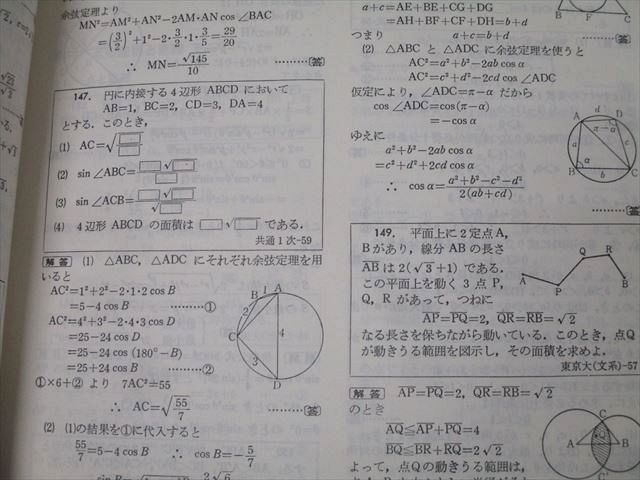 余弦定理より
MN²=AM²+AN²−2AM·AN cos∠BAC
=(3/2)²+1²−2·3/2·1·3/5=29/20
∴ MN=√145/10 ………〔答〕
147. 円に内接する4辺形 ABCD において
AB=1, BC=2, CD=3, DA=4
とする. このとき,
(1) AC=√□/□
(2) sin∠ABC=□√□/□
(3) sin∠ACB=□√□/√□
(4) 4辺形 ABCD の面積は □√□ である.
共通1次-59
解答 (1) △ABC, △ADC にそれぞれ余弦定理を用
いると
AC²=1²+2²−2·1·2cos B
=5−4cos B ………①
AC²=4²+3²−2·4·3cos D
=25−24cos D
=25−24cos(180°−B)
=25+24cos B ………②
①×6+② より 7AC²=55
∴ AC=√55/7 ………〔答〕
(2) (1)の結果を①に代入すると
55/7=5−4cos B ∴ cos B=−5/7
B 1 A
2
C
4
3
D
a+c=AE+BE+CG+DG
=AH+BF+CF+DH=b+d
つまり a+c=b+d
B F C
(2) △ABC と △ADC に余弦定理を使うと
AC²=a²+b²−2ab cos α
AC²=c²+d²−2cd cos∠ADC
仮定により, ∠ADC=π−α だから
cos∠ADC=cos(π−α)
=−cos α
ゆえに
a²+b²−2ab cos α
=c²+d²+2cd cos α
∴ cos α=a²+b²−c²−d²/2(ab+cd)
………〔答〕
A d D
π−α
a c
α
B b C
149. 平面上に2定点A,
Bがあり, 線分ABの長さ
ABは2(√3+1)である.
この平面上を動く3点P,
Q, Rがあって, つねに
AP=PQ=2, QR=RB=√2
なる長さを保ちながら動いている. このとき, 点Q
が動きうる範囲を図示し, その面積を求めよ.
東京大(文系)-57
Q R
A P B
解答 AP=PQ=2, QR=RB=√2
のとき
AQ≦AP+PQ=4
BQ≦BR+RQ=2√2
よって, 点Qの動きうる範囲は,
C
Q
A B